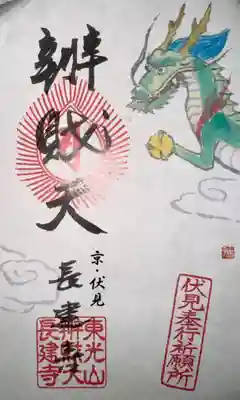 辨財天
京・伏見
長建寺
東光山
辨財天
長建寺
伏見奉行祈願所